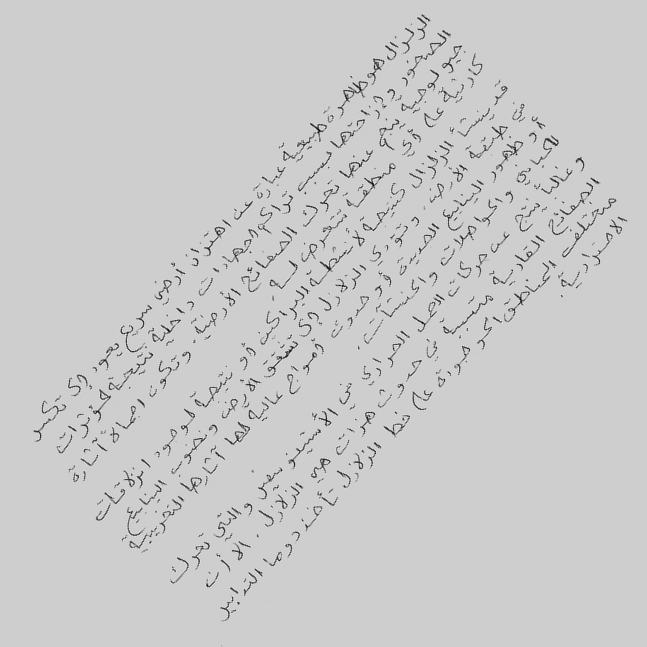 الزلزال هو ظاهرة طبيعية عبارة عن اهتزاز أرضي سريع يعود إلى تكسر
الصخور وإزاحتها بسبب تراكم اجهادات داخلية نتيجة لمؤثرات
جيولوجية ينتج عنها تحرك الصفائح الأرضية. وتكون اجمالا آثاره
كارثية على أي منطقة تتعرض له.
قد ينشأ الزلزال كنتيجة لأنشطة البراكين أو نتيجة لوجود انزلاقات
في طبقة الأرض. وتؤدي الزلازل إلى تشقق الأرض ونضوب الينابيع
أو ظهور الينابيع الجديدة أو حدوث أمواج عالية لها آثارها التخريبية
للمباني والمواصلات والمنشآت.
وغالبا ينتج عن حركات الحمل الحراري في الأستينوسفير والتي تحرك
الصفائح القارية متسببة في حدوث هزات هي الزلازل. الا أن
مختلف المناطق الموجودة على خط الزلازل تأخذ دوما التدابير
الاحترازية.